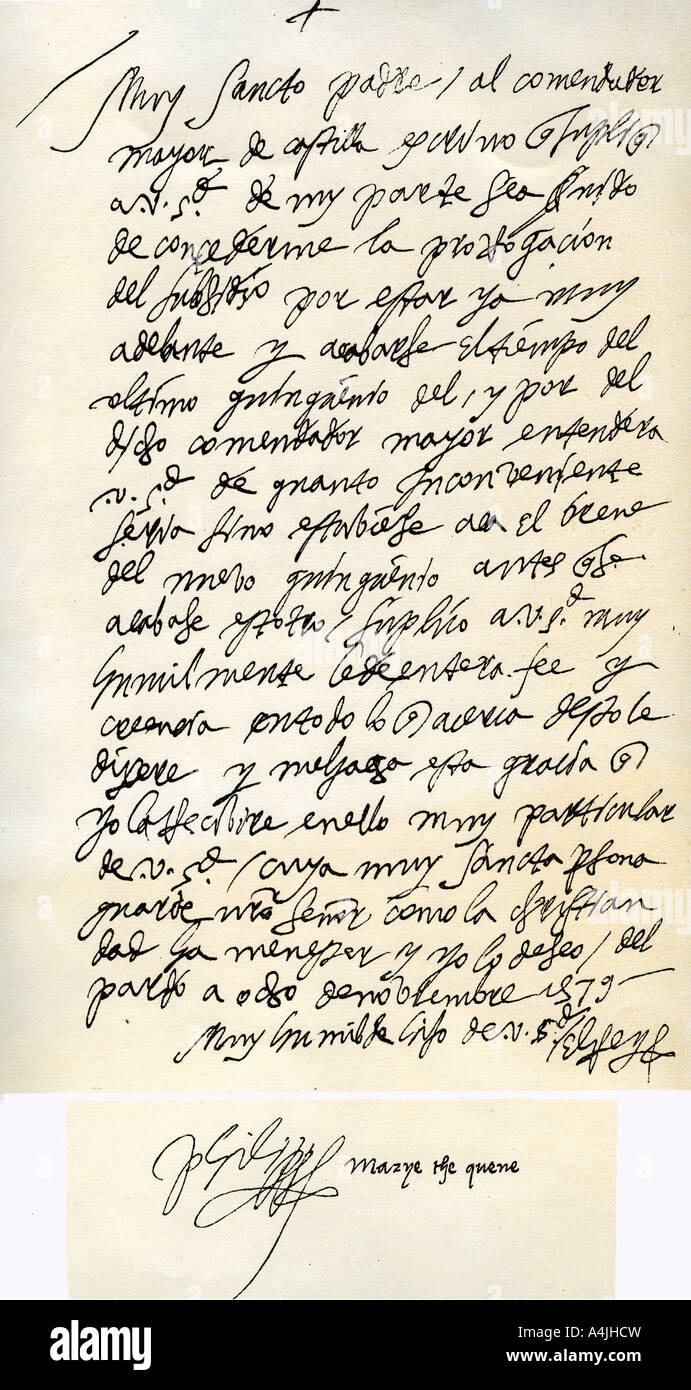 Muy Sancto padre / al comendador
mayor de castilla escrivo q suplique
a .v. s.d de my parte sea servido
de concederme la prorogacion
del subsidio por estar ya muy
adelante y acabarse el tiempo del
ultimo quinquenio del, y por del
dicho comendador mayor entendera
.v. s.d de quanto inconveniente
seria sino estubiese aca el breve
del nuebo quinquenio antes q se
acabase estotro / suplico a .v. s.d muy
humilmente le de entera fee y
creencia en todo lo q acerca desto le
dixere y me haga esta gracia q
yo la recibire en ello muy particular
de .v. s.d / cuya muy sancta psona
guarde nro señor como la christian
dad ha menester y yo lo deseo / del
pardo a ocho de noviembre 1579
Muy humilde hijo de .v. s.d / El Rey
Philipp marye the quene
alamy
A4JHCW
www.alamy.com